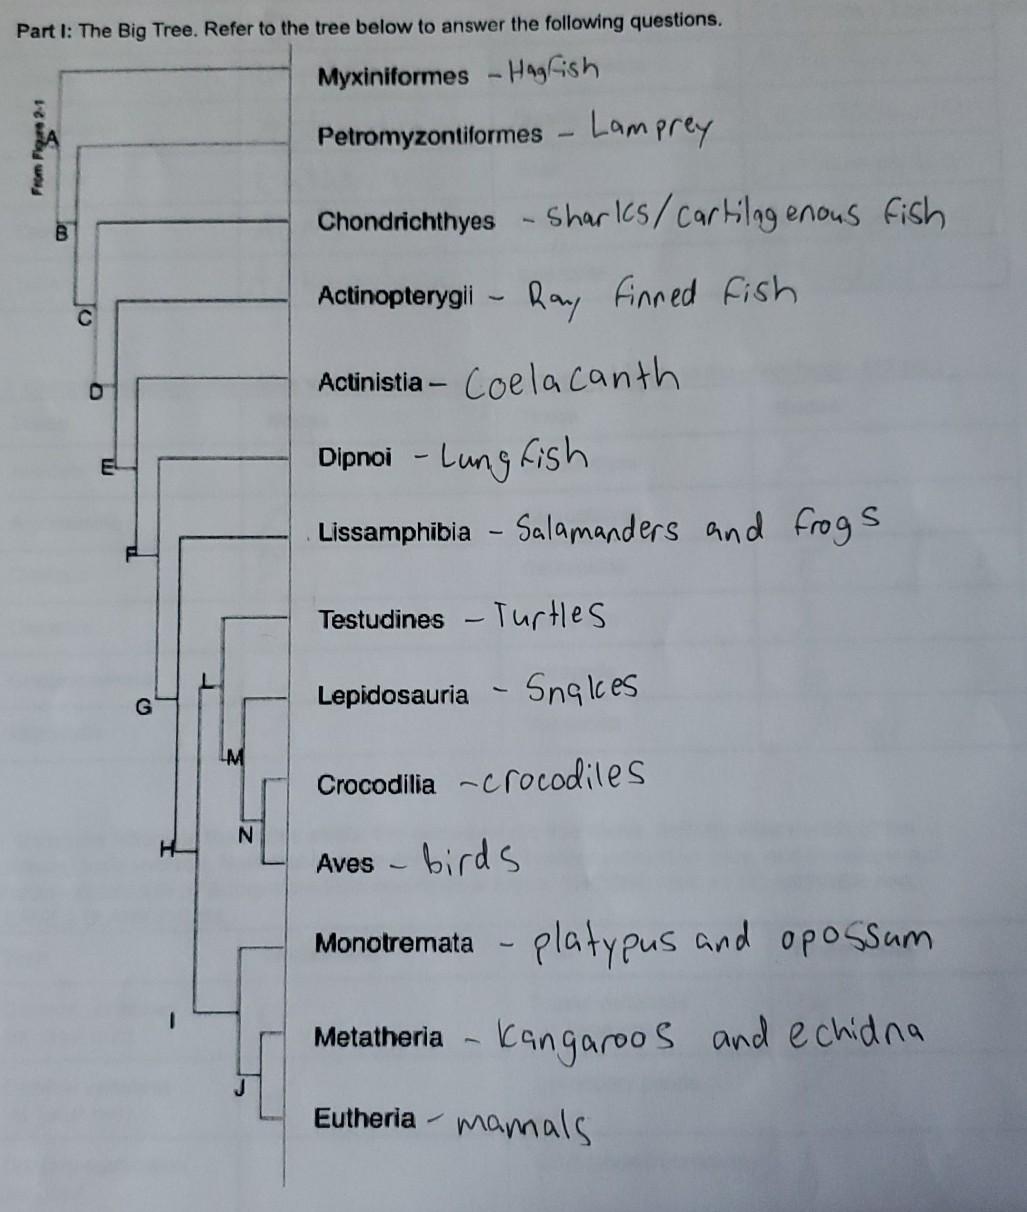 Part I: The Big Tree. Refer to the tree below to answer the following questions.
From Figure 2-1
Myxiniformes - Hagfish
A
Petromyzontiformes - Lamprey
Chondrichthyes - Sharks/cartilagenous fish
B
Actinopterygii - Ray finned fish
C
Actinistia - Coelacanth
D
Dipnoi - Lung fish
E
Lissamphibia - Salamanders and frogs
F
Testudines - Turtles
L
Lepidosauria - Snakes
G
M
Crocodilia - crocodiles
N
H
Aves - birds
Monotremata - platypus and opossum
I
Metatheria - Kangaroos and echidna
J
Eutheria - mamals